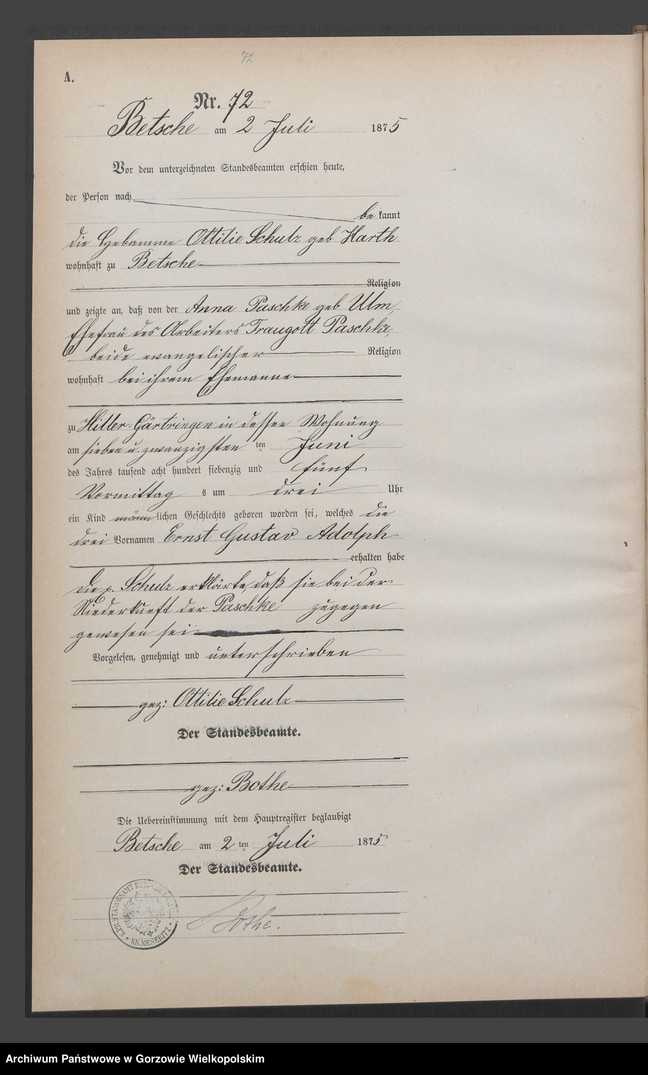 71.
A.
Nr. 72
Betsche am 2 Juli 1875
Vor dem unterzeichneten Standesbeamten erschien heute,
der Person nach
bekannt
die Hebamme Ottilie Schulz geb Harth
wohnhaft zu Betsche
Religion
und zeigte an, daß von der Anna Paschke geb Ulm,
Ehefrau des Arbeiters Traugott Paschke,
beide evangelischer Religion
wohnhaft bei ihrem Ehemanne
zu Hiller-Gärtringen in dessen Wohnung
am sieben u. zwanzigsten ten Juni
des Jahres tausend acht hundert siebenzig und fünf
Vormittags um drei Uhr
ein Kind männlichen Geschlechts geboren worden sei, welches die
drei Vornamen Ernst Gustav Adolph
erhalten habe
Die p. Schulz erklärte, daß sie bei der
Niederkunft der Paschke zugegen
gewesen sei
Vorgelesen, genehmigt und unterschrieben
gez: Ottilie Schulz
Der Standesbeamte.
gez: Bothe
Die Uebereinstimmung mit dem Hauptregister beglaubigt
Betsche am 2 ten Juli 1875
Der Standesbeamte.
Bothe.
KR. MESERITZ
Archiwum Państwowe w Gorzowie Wielkopolskim